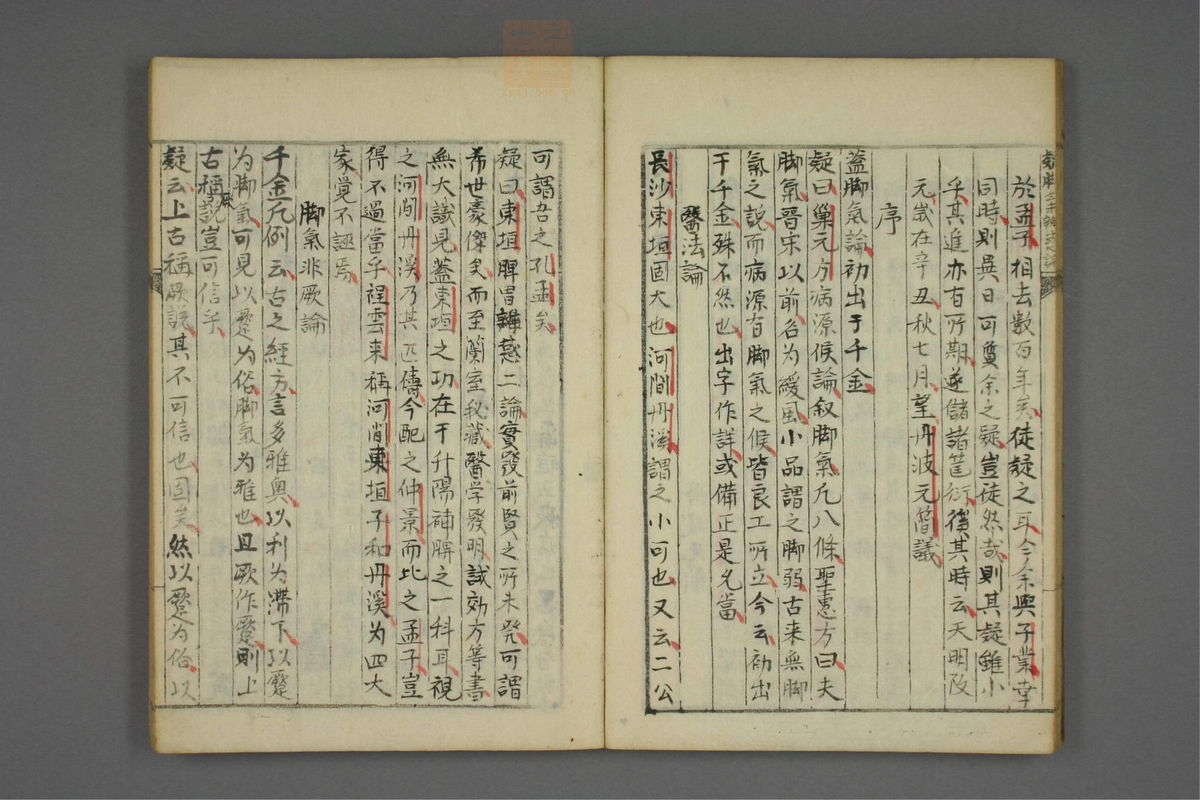 於孟子相去數百年矣徒疑之耳今余與子業幸
同時則異日可質余之疑豈徒然哉則其疑雖小
乎其進亦有所期遂儲諸篋衍俟其時云天明改
元歲在辛丑秋七月望丹波元簡議
序
蓋脚氣論初出于千金
疑曰巢元方病源候論叙脚氣凡八條聖惠方曰夫
脚氣晋宋以前名為緩風小品謂之脚弱古来無脚
氣之説而病源有脚氣之候皆良工所立今云初出
于千金殊不然也出字作詳或備正是允當
醫法論
長沙東垣固大也河間丹溪謂之小可也又云二公
可謂吾之孔孟矣
疑曰東垣脾胃辨惑二論實發前賢之所未発可謂
希世豪傑矣而至蘭室秘藏醫学發明試効方等書
無大議見蓋東垣之功在于升陽補脾之一科耳視
之河間丹溪乃其匹儔今配之仲景而比之孟子豈
得不過當乎裎雲来稱河肖東垣子和丹溪为四大
家覚不誣焉
脚氣非厥論
千金凢例云古之經方言多雅奥以利为滞下以躄
为脚氣可見以躄为俗脚氣为雅也且厥作躄則上
古稱厥説豈可信乎
疑云上古稱厥説其不可信也固矣然以躄为俗以